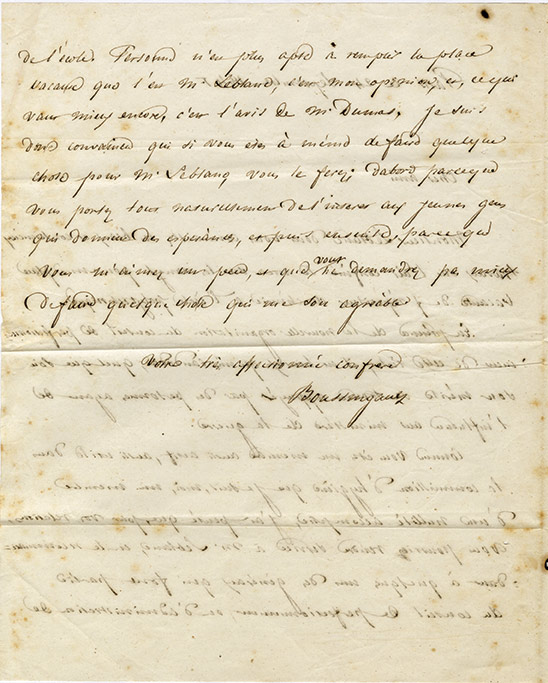 de l'école. Personne n'est plus apte à remplir la place
vacante que l'est Mr Leblanc, c'est mon opinion et, ce qui
vaut mieux encore, c'est l'avis de Mr Dumas, je suis
donc convaincu que si vous etes à même de faire quelque
chose pour Mr Leblanc, vous le ferez; dabord parceque
vous portez tout naturellement de l'interet aux jeunes gens
qui donnent des espérances, et puis ensuite, parce que
vous m'aimez un peu, et que vous ne demandez pas mieux
de faire quelque chose qui me soit agréable
Votre très affectionné confrere
Boussingault